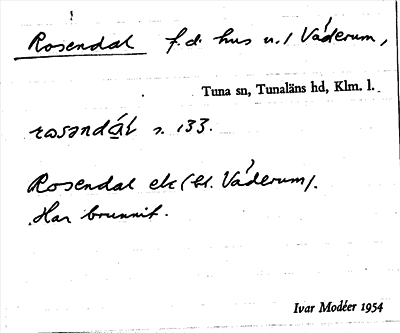 Rosendal f.d. hus u./ Váderum,
Tuna sn, Tunaläns hd, Klm. l.
rωsəndɑ́l s. 133.
Rosendal ek (bl. Váderum).
Har brunnit.
Ivar Modéer 1954